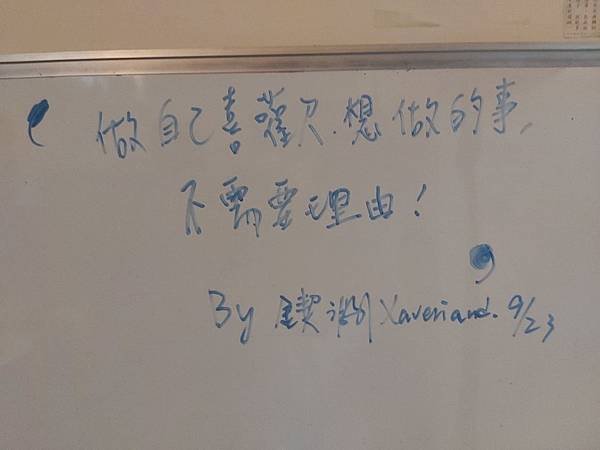 做自己喜歡、想做的事,
不需要理由!
By Xaveriand. 9/23